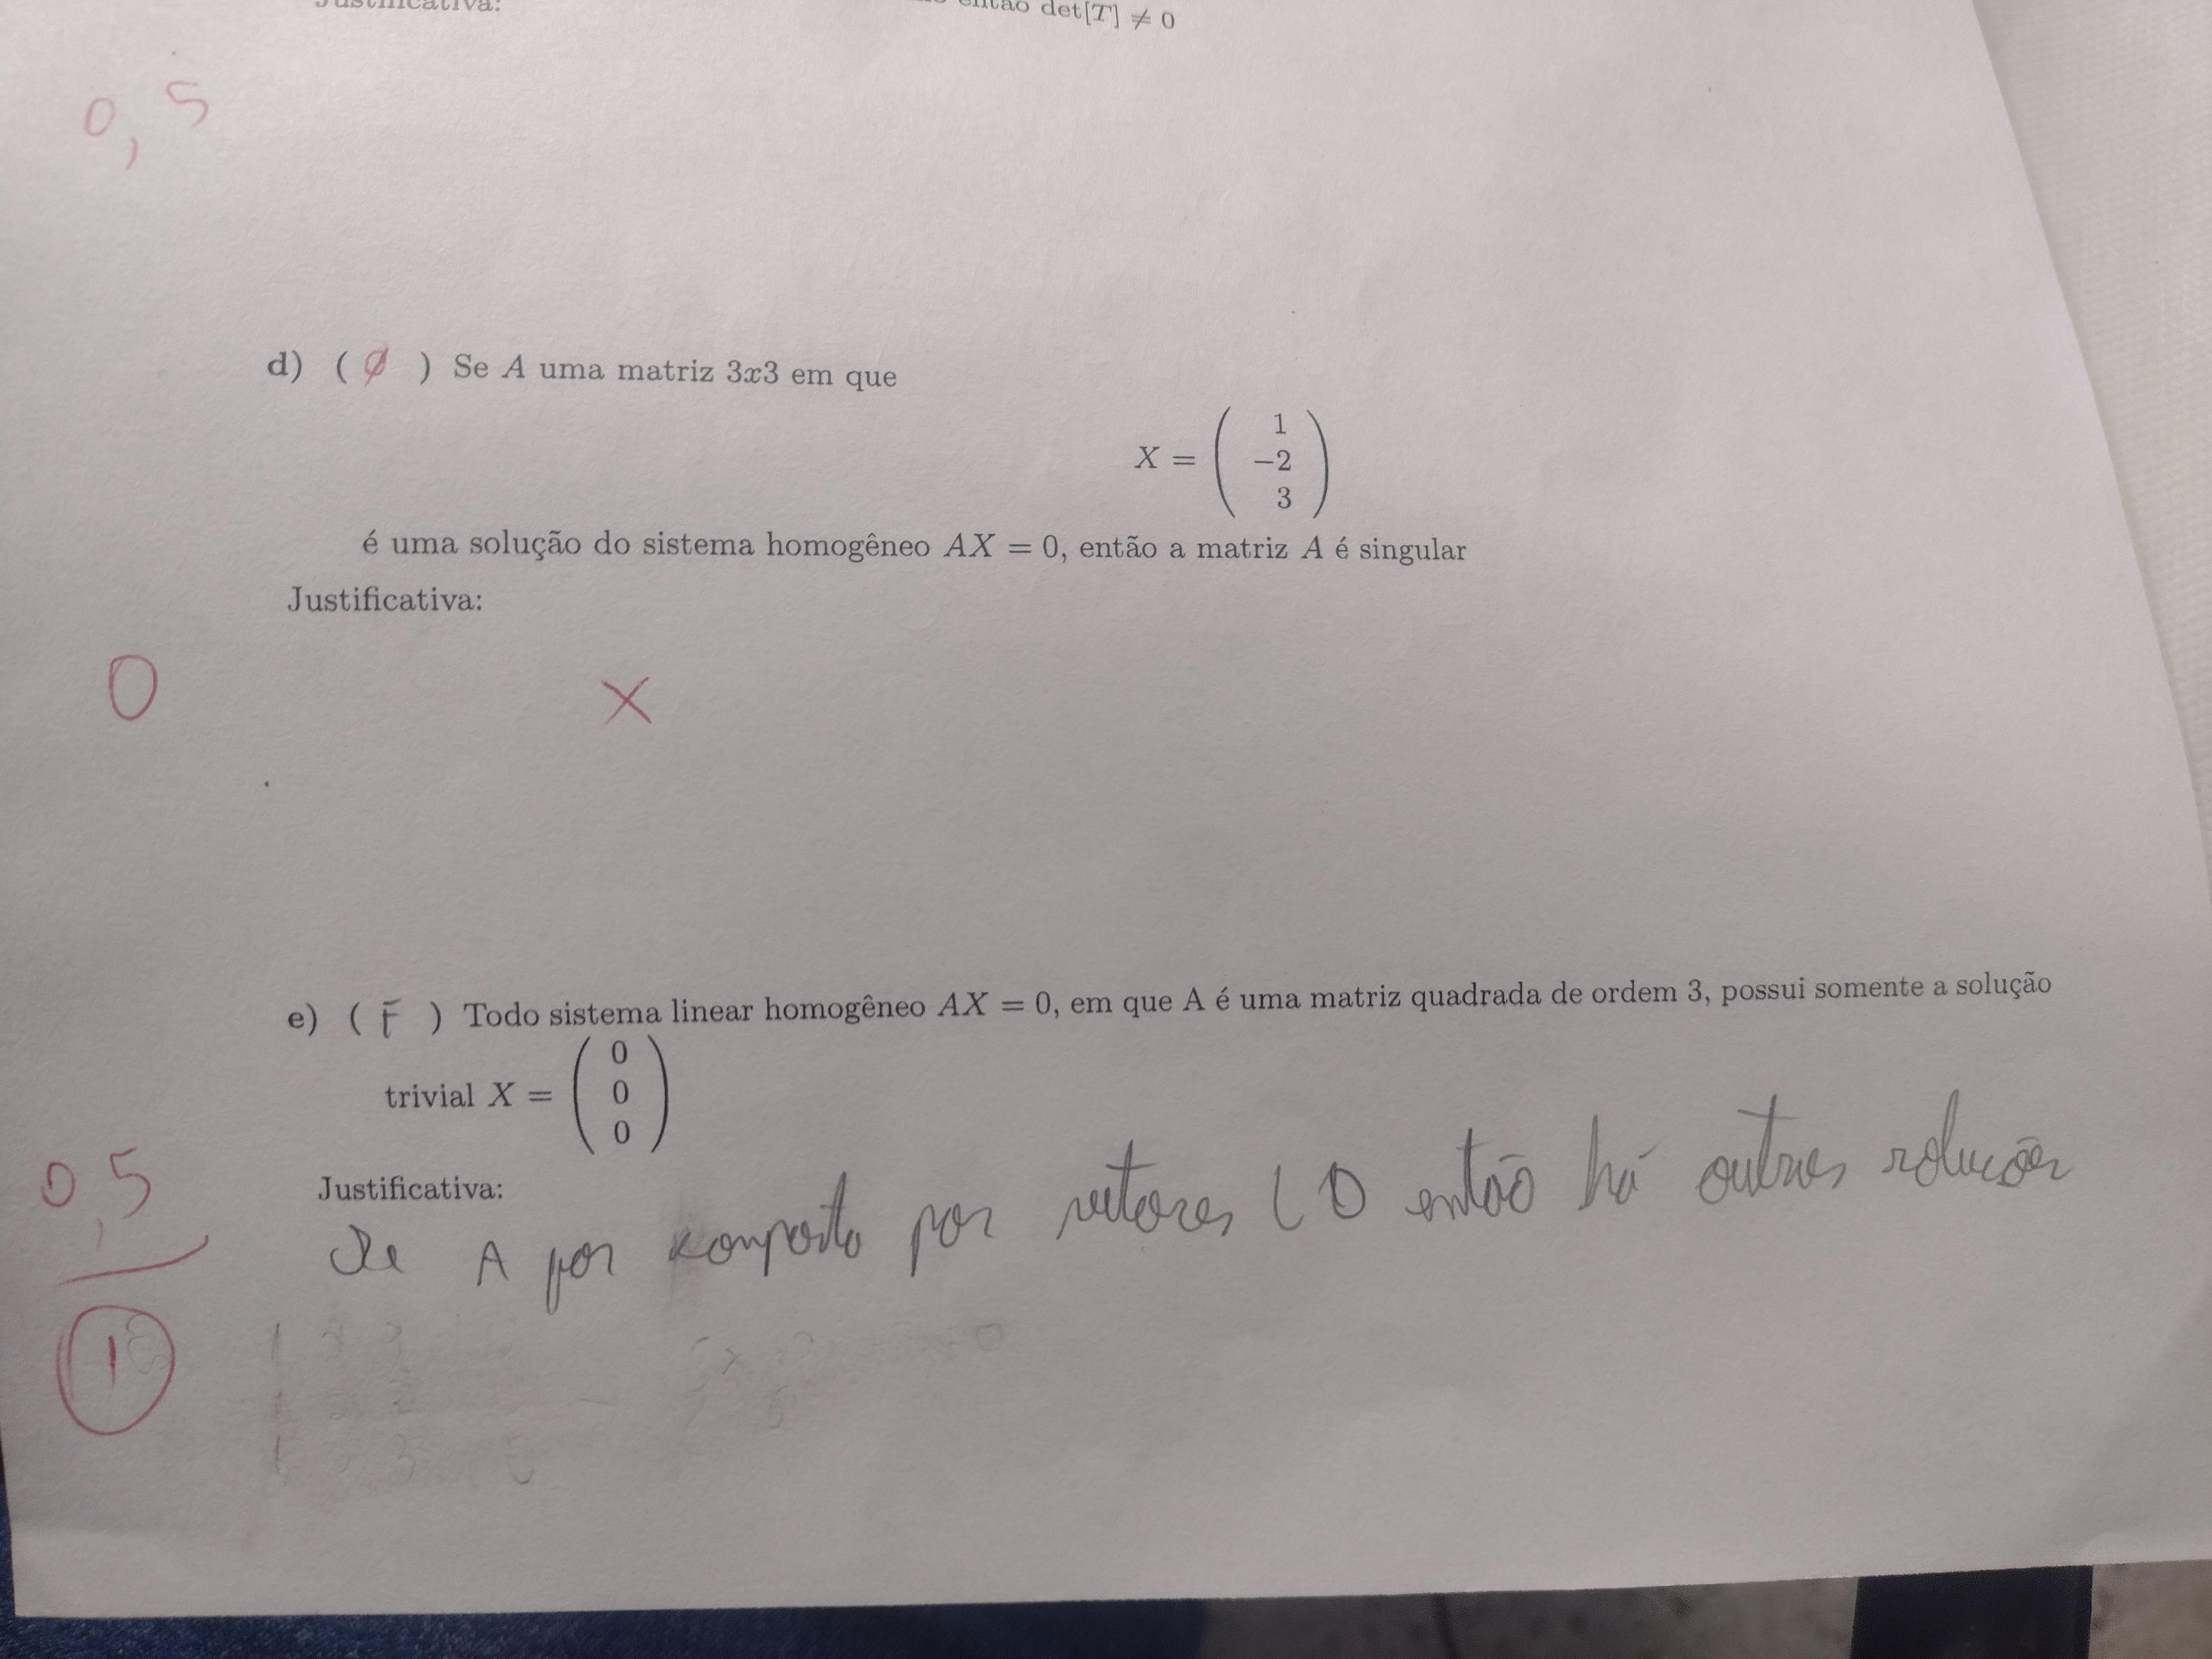 Justificativa:
então det[T] ≠ 0
0,5
d) ( ∅ ) Se A uma matriz 3x3 em que
X = ( 1
−2
3 )
é uma solução do sistema homogêneo AX = 0, então a matriz A é singular
Justificativa:
0 X
e) ( F ) Todo sistema linear homogêneo AX = 0, em que A é uma matriz quadrada de ordem 3, possui somente a solução
trivial X = ( 0
0
0 )
0,5
Justificativa:
Se A por composto por vetores LD então há outras soluções
1